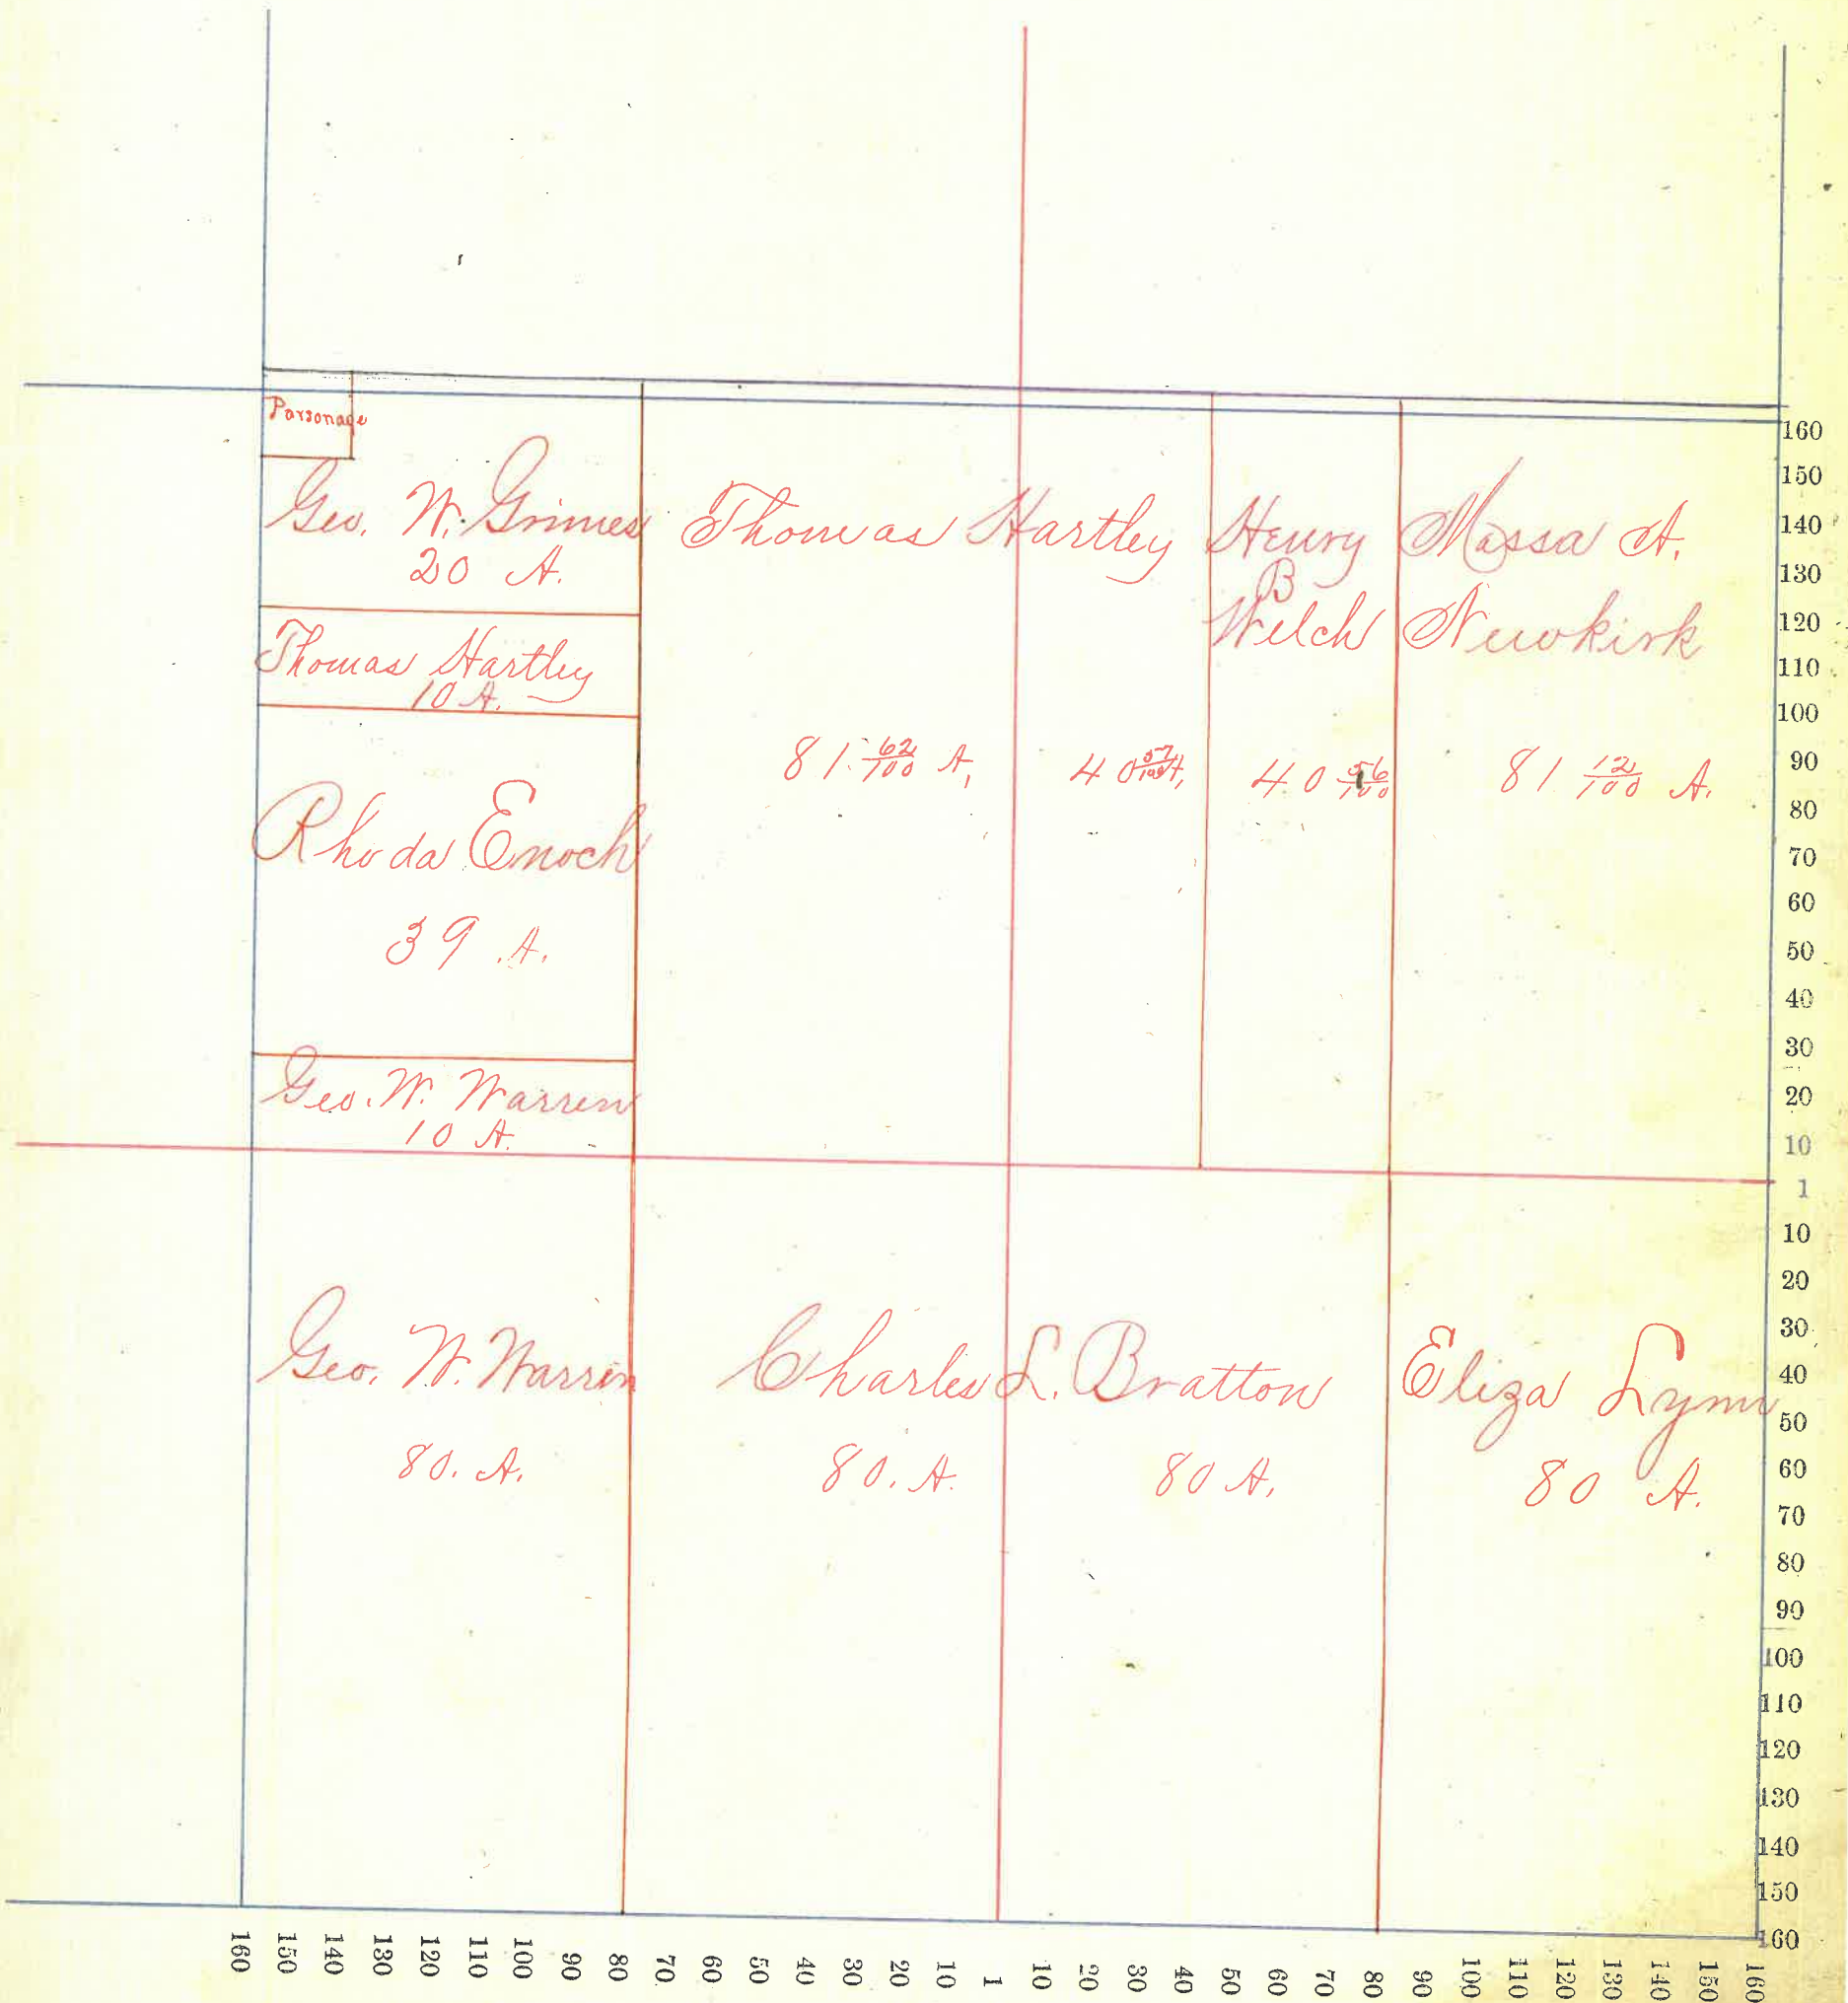 Parsonage
Geo. W. Grimes
20 A.
Thomas Hartley
10 A.
Rhoda Enoch
39 A.
Geo. W. Warren
10 A.
Thomas Hartley
81 62/100 A.
40 57/100 A.
Henry
B
Welch
40 56/100
Massa A.
Newkirk
81 12/100 A.
Geo. W. Warren
80. A.
Charles L. Bratton
80. A.
80 A.
Eliza Lynn
80 A.
160
150
140
130
120
110
100
90
80
70
60
50
40
30
20
10
1
10
20
30
40
50
60
70
80
90
100
110
120
130
140
150
160
160 150 140 130 120 110 100 90 80 70 60 50 40 30 20 10 1 10 20 30 40 50 60 70 80 90 100 110 120 130 140 150 160